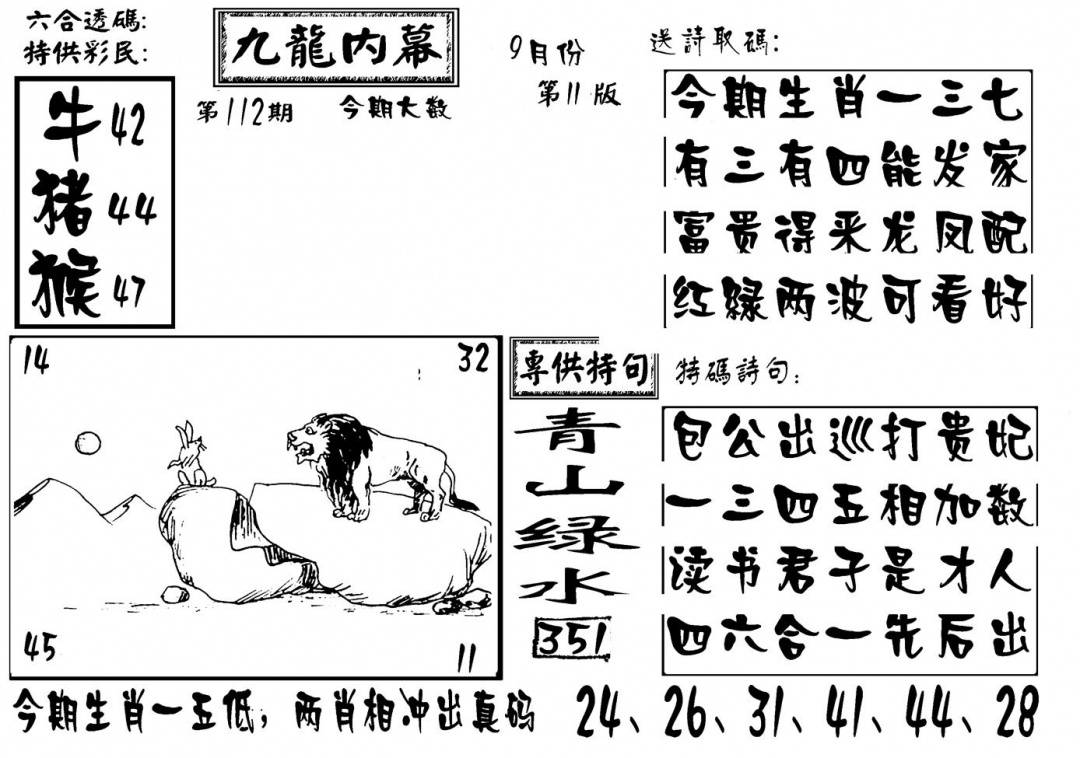 六合透碼:
特供彩民:
牛 42
猪 44
猴 47
九龍內幕
第112期 今期大数
9月份
第11版
送詩取碼:
今期生肖一三七
有三有四能发家
富贵得来龙凤配
红緑两波可看好
14 32
45 11
專供特句
青
山
绿
水
351
特碼詩句:
包公出巡打贵妃
一三四五相加数
读书君子是才人
四六合一先后出
今期生肖一五低,两肖相冲出真码 24、26、31、41、44、28